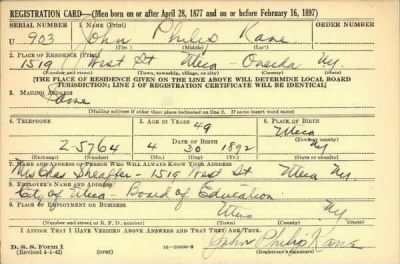 REGISTRATION CARD—(Men born on or after April 28, 1877 and on or before February 16, 1897)
SERIAL NUMBER 1. NAME (Print) ORDER NUMBER
U 903 John Philip Kane
(First) (Middle) (Last)
2. PLACE OF RESIDENCE (Print)
1519 West St Utica - Oneida Ny.
(Number and street) (Town, township, village, or city) (County) (State)
[THE PLACE OF RESIDENCE GIVEN ON THE LINE ABOVE WILL DETERMINE LOCAL BOARD
JURISDICTION; LINE 2 OF REGISTRATION CERTIFICATE WILL BE IDENTICAL]
3. MAILING ADDRESS
Same
[Mailing address if other than place indicated on line 2. If same insert word same]
4. TELEPHONE 5. AGE IN YEARS 6. PLACE OF BIRTH
49 Utica
2-5764 DATE OF BIRTH (Town or county)
4 30 1892 Ny
(Exchange) (Number) (Mo.) (Day) (Yr.) (State or country)
7. NAME AND ADDRESS OF PERSON WHO WILL ALWAYS KNOW YOUR ADDRESS
Mrs Chas Sheaffer - 1519 West St Utica Ny.
8. EMPLOYER'S NAME AND ADDRESS
City of Utica - Board of Education
9. PLACE OF EMPLOYMENT OR BUSINESS
Utica Ny
(Number and street or R. F. D. number) (Town) (County) (State)
I AFFIRM THAT I HAVE VERIFIED ABOVE ANSWERS AND THAT THEY ARE TRUE.
D. S. S. Form 1
(Revised 4-1-42) (over)
John Philip Kane
(Registrant's signature)